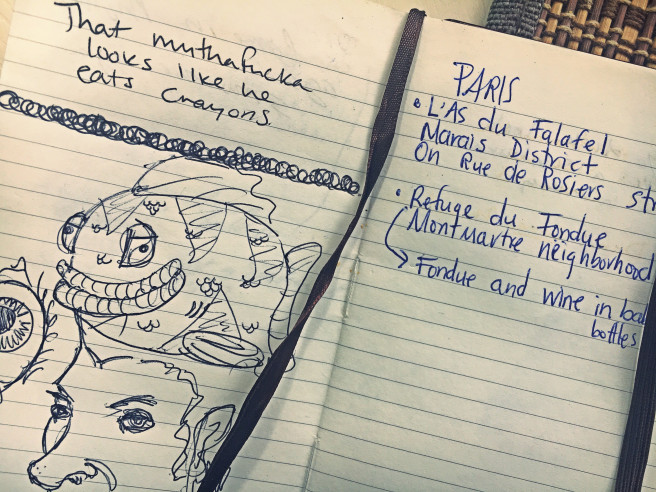 That muthafucka
looks like he
eats crayons
PARIS
• L'As du Falafel
Marais District
On Rue de Rosiers str
• Refuge du Fondue
Montmartre neighborhood
→ Fondue and wine in
bottles